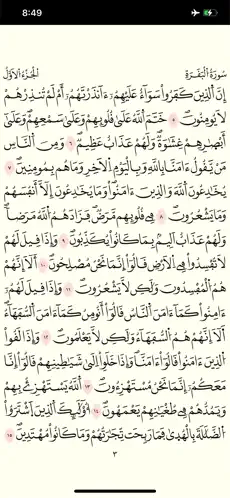 8:49
سُورَةُ الْبَقَرَةِ
الْجُزْءُ الْأَوَّلُ
إِنَّ اَ۬لذِينَ كَفَرُواْ سَوَآءٌ عَلَيْهِمُۥٓ ءَآنذَرْتَهُمُۥٓ أَمْ لَمْ تُنذِرْهُمْ
لَا يُومِنُونَۖ ٥ خَتَمَ اَ۬للَّهُ عَلَىٰ قُلُوبِهِمْ وَعَلَىٰ سَمْعِهِمْۖ وَعَلَىٰٓ
أَبْصَٰرِهِمْ غِشَٰوَةٞۖ وَلَهُمْ عَذَابٌ عَظِيمٞۖ ٦ وَمِنَ اَ۬لنَّاسِ
مَنْ يَّقُولُ ءَامَنَّا بِاللَّهِ وَبِالْيَوْمِ اِ۬لَاخِرِ وَمَا هُم بِمُومِنِينَۖ ٧
يُخَٰدِعُونَ اَ۬للَّهَ وَالذِينَ ءَامَنُواْ وَمَا يُخَٰدِعُونَ إِلَّآ أَنفُسَهُمْ
وَمَا يَشْعُرُونَۖ ٨ فِے قُلُوبِهِم مَّرَضٞ فَزَادَهُمُ اُ۬للَّهُ مَرَضاٗۖ
وَلَهُمْ عَذَابٌ أَلِيمُۢ بِمَا كَانُواْ يُكَذِّبُونَۖ ٩ وَإِذَا قِيلَ لَهُمْ
لَا تُفْسِدُواْ فِے اِ۬لَارْضِ قَالُوٓاْ إِنَّمَا نَحْنُ مُصْلِحُونَۖ ١٠ أَلَآ إِنَّهُمْ
هُمُ اُ۬لْمُفْسِدُونَ وَلَٰكِن لَّا يَشْعُرُونَۖ ١١ وَإِذَا قِيلَ لَهُمُۥٓ
ءَامِنُواْ كَمَآ ءَامَنَ اَ۬لنَّاسُ قَالُوٓاْ أَنُومِنُ كَمَآ ءَامَنَ اَ۬لسُّفَهَآءُۖ
أَلَآ إِنَّهُمْ هُمُ اُ۬لسُّفَهَآءُ وَلَٰكِن لَّا يَعْلَمُونَۖ ١٢ وَإِذَا لَقُواْ
اُ۬لذِينَ ءَامَنُواْ قَالُوٓاْ ءَامَنَّا وَإِذَا خَلَوِاْ اِلَىٰ شَيَٰطِينِهِمْ قَالُوٓاْ إِنَّا
مَعَكُمُۥٓ إِنَّمَا نَحْنُ مُسْتَهْزِءُونَۖ ١٣ اَ۬للَّهُ يَسْتَهْزِۓُ بِهِمْ
وَيَمُدُّهُمْ فِے طُغْيَٰنِهِمْ يَعْمَهُونَۖ ١٤ أُوْلَٰٓئِكَ اَ۬لذِينَ اَ۪شْتَرَوُاْ
اُ۬لضَّلَٰلَةَ بِالْهُدَىٰ فَمَا رَبِحَت تِّجَٰرَتُهُمْ وَمَا كَانُواْ مُهْتَدِينَۖ ١٥
٣